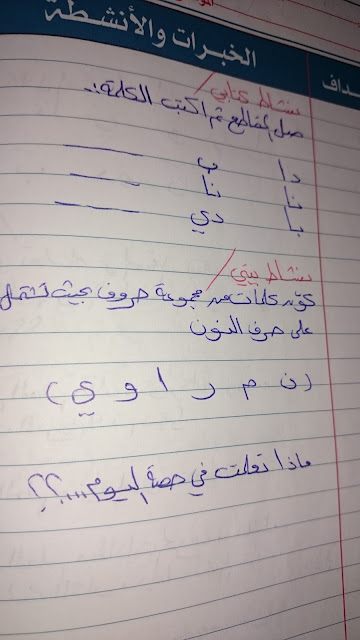 الخبرات والأنشطة
داف
نشاط كتابي /
صل المقاطع ثم اكتب الكلمة :-
دا ب ـــــ
نا نا ـــــ
با دي ـــــ
نشاط بيتي /
كوّن كلمات من مجموعة حروف بحيث تشتمل
على حرف النون
( ن م ر ا و ي )
ماذا تعلمت في حصة اليوم....؟؟